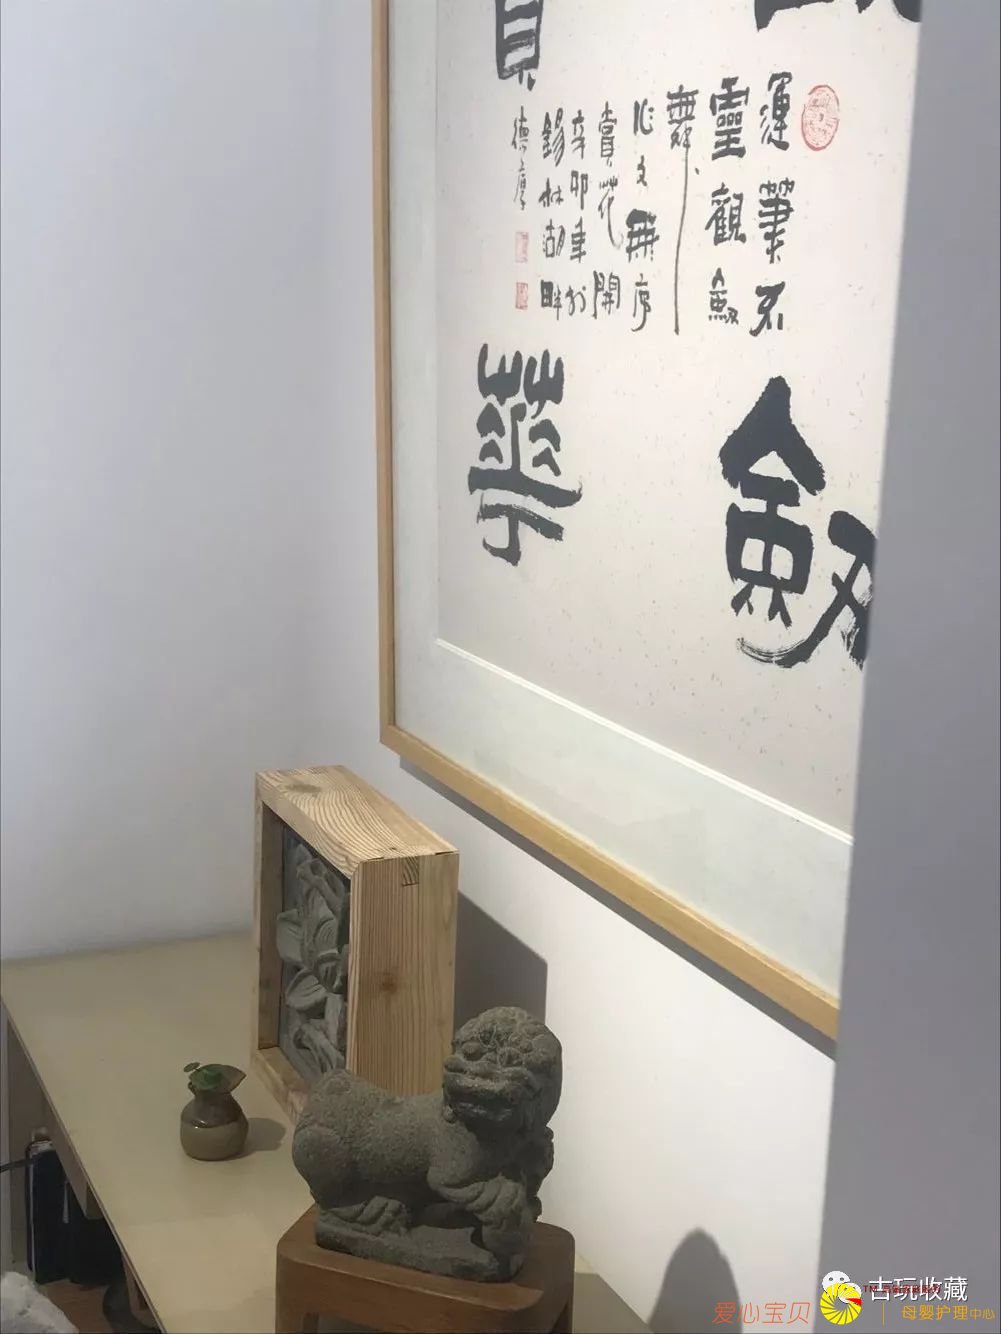 劍
華
運筆不
靈觀劍
舞
作文無序
賞花開
辛卯年於
錫林湖畔
德
古玩收藏
爱心宝贝
母婴护理中心